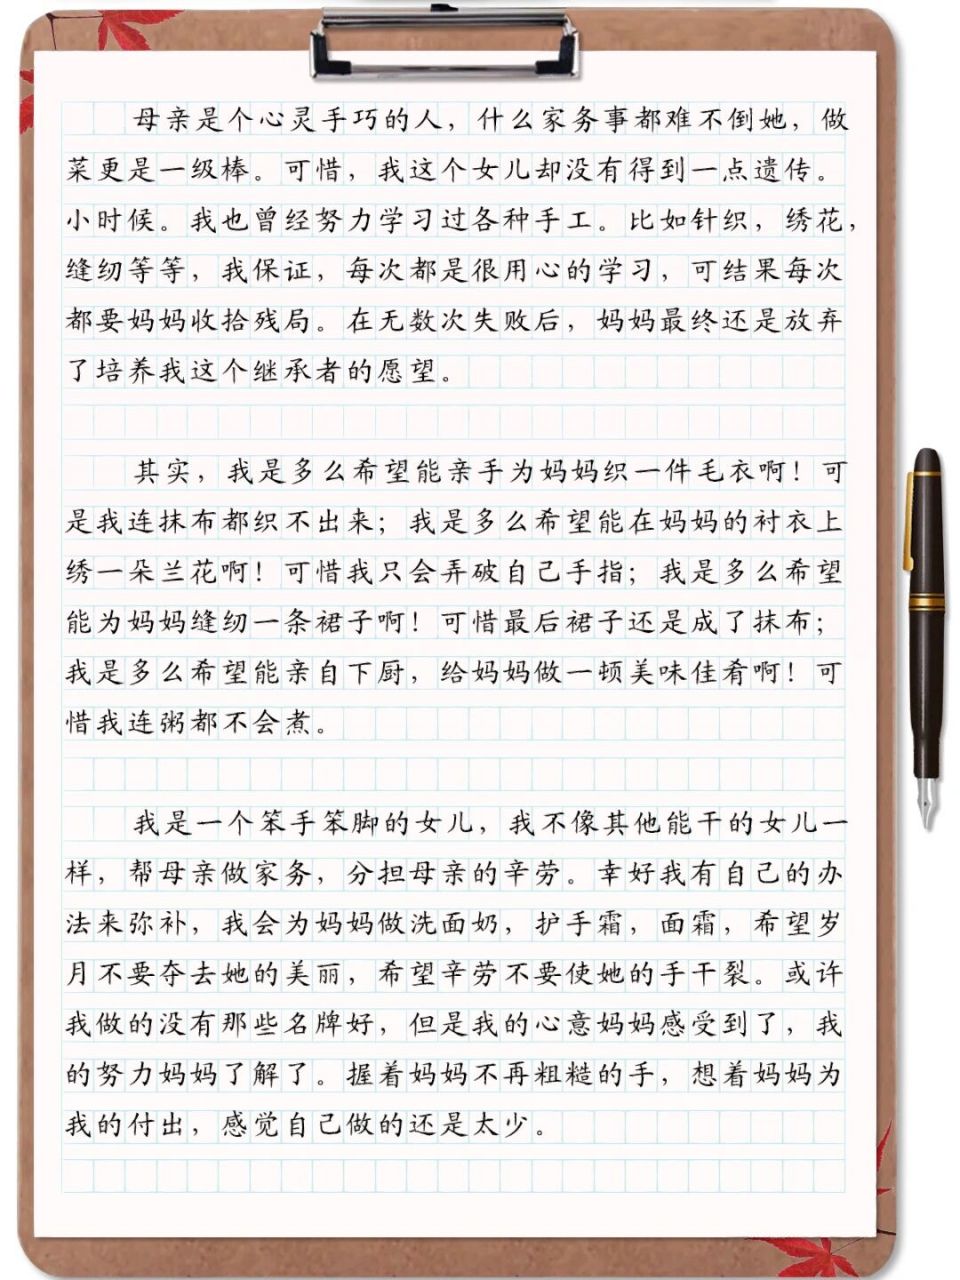 母亲是个心灵手巧的人，什么家务事都难不倒她，做
菜更是一级棒。可惜，我这个女儿却没有得到一点遗传。
小时候。我也曾经努力学习过各种手工。比如针织，绣花，
缝纫等等，我保证，每次都是很用心的学习，可结果每次
都要妈妈收拾残局。在无数次失败后，妈妈最终还是放弃
了培养我这个继承者的愿望。
其实，我是多么希望能亲手为妈妈织一件毛衣啊！可
是我连抹布都织不出来；我是多么希望能在妈妈的衬衣上
绣一朵兰花啊！可惜我只会弄破自己手指；我是多么希望
能为妈妈缝纫一条裙子啊！可惜最后裙子还是成了抹布；
我是多么希望能亲自下厨，给妈妈做一顿美味佳肴啊！可
惜我连粥都不会煮。
我是一个笨手笨脚的女儿，我不像其他能干的女儿一
样，帮母亲做家务，分担母亲的辛劳。幸好我有自己的办
法来弥补，我会为妈妈做洗面奶，护手霜，面霜，希望岁
月不要夺去她的美丽，希望辛劳不要使她的手干裂。或许
我做的没有那些名牌好，但是我的心意妈妈感受到了，我
的努力妈妈了解了。握着妈妈不再粗糙的手，想着妈妈为
我的付出，感觉自己做的还是太少。